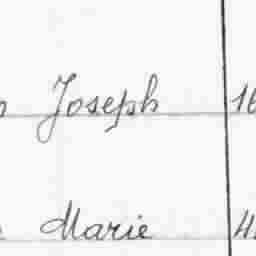 Joseph 16
Marie 4